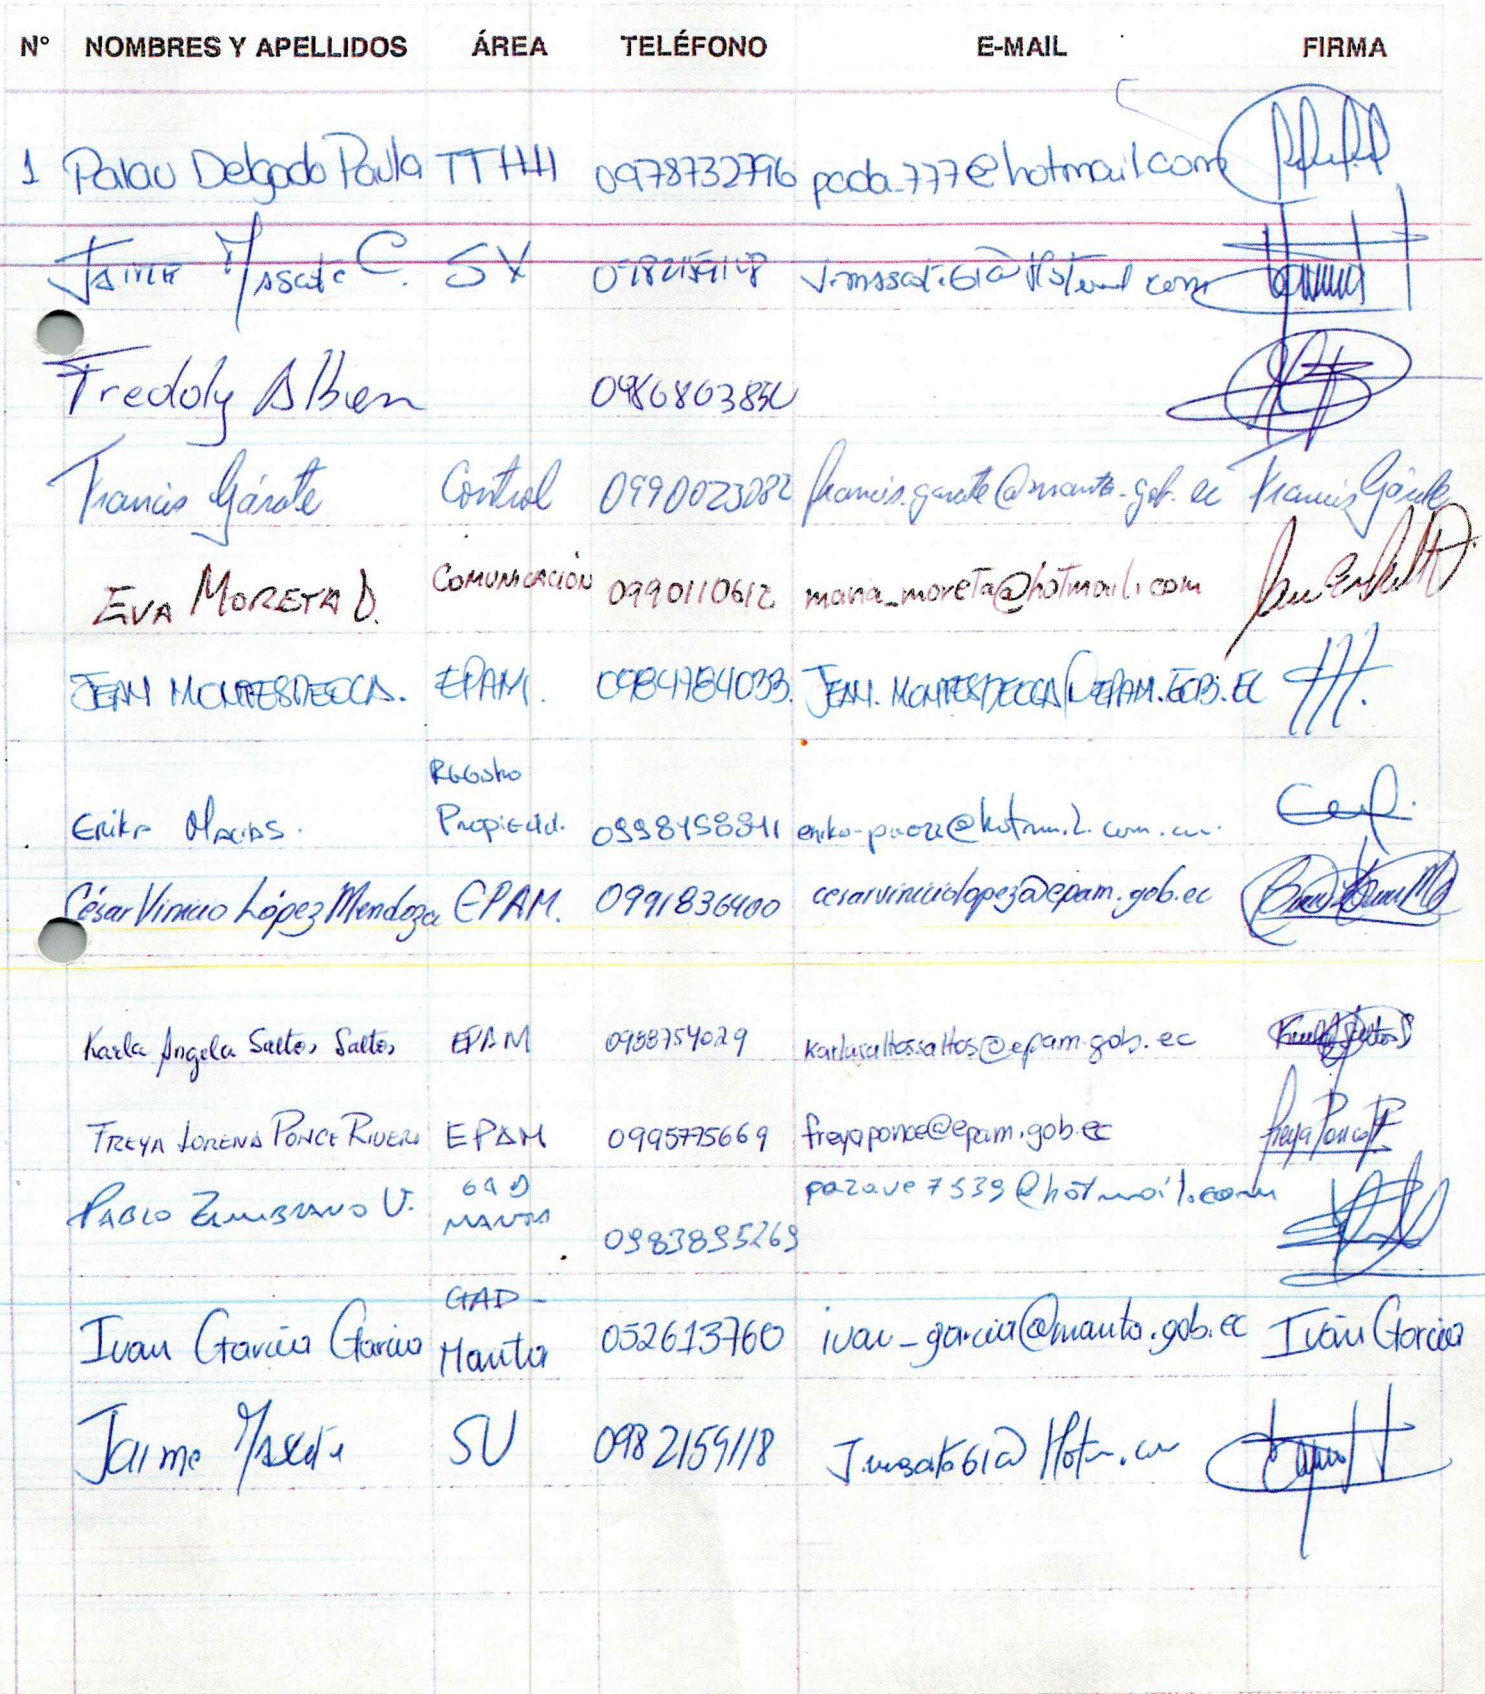 N° NOMBRES Y APELLIDOS ÁREA TELÉFONO E-MAIL FIRMA
1 Palau Delgado Paula TTHH 0978732796 pada_777@hotmail.com
Jaime C.
Freddy
Francis Gárate Control 0990023082 francis.garate@manta.gob.ec Francis Gárate
EVA MORETA D. COMUNICACIÓN 0990110612 maria_moreta@hotmail.com
JEAN MONTESDEOCA. EPAM. 0984784033. JEAN.MONTESDEOCA@EPAM.GOB.EC
Registro
Erika Macias. Propiedad.
César Vinicio López Mendoza EPAM. 0991836400 cesarviniciolopez@epam.gob.ec
Karla Angela Saltos Saltos EPAM 0988754029 karlasaltossaltos@epam.gob.ec
FREYA LORENA PONCE RIVERA EPAM 0995775669 freyaponce@epam.gob.ec
PABLO ZAMBRANO V. GAD MANTA 0983895269 pazave7539@hotmail.com
GAD-
Ivan Garcia Garcia Manta 052613760 ivan_garcia@manta.gob.ec Iván Garcia
Jaime SU 0982159118